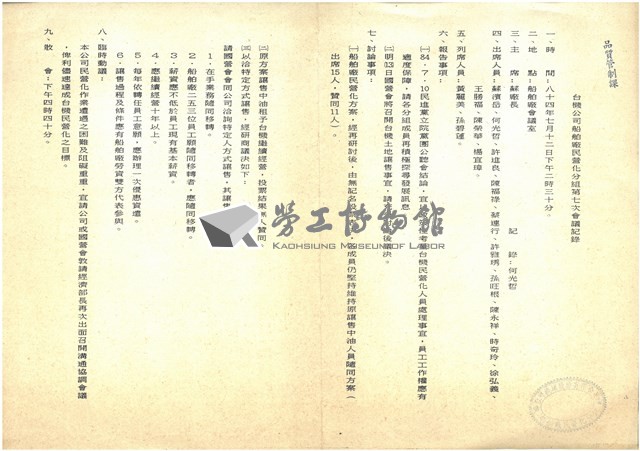 品質管制課
台機公司船舶廠民營化分組第七次會議記錄
一、時　間：八十四年七月十二日下午二時三十分。
二、地　點：船舶廠會議室
三、主　席：蘇廠長　記　錄：何光哲
四、出席人員：蘇濱岳、何光哲、許進良、陳福祿、蔡連行、許雅琇、孫旺根、陳永祥、時奇玲、徐弘義、
王勝福、陳榮華、楊宜璋。
五、列席人員：黃麗美、孫碧蓮。
六、報告事項：
㈠84．7．10民進黨立院黨團公聽會結論，宜 考量台機民營化人員處理事宜，員工工作權應有
適度保障，請各分組成員再積極探尋發展訊息
㈡明03日國營會將召開台機土地讓售事宜，請 後議決。
七、討論事項：
㈠船舶廠民營化方案，經再研討後，由無記名投 成員仍堅持維持原讓售中油人員隨同方案（
出席15人，贊同11人）。
㈡原方案讓售中油租予台機繼續經營，投票結果無人贊同、
㈢以洽特定方式讓售，經研商議決如下：
請國營會會同公司洽詢特定人方式讓售，其讓售
1．在手業務隨同移轉。
2．船舶廠二五三位員工願隨同移轉者，應隨同移轉。
3．薪資應不低於員工現有基本薪資。
4．應繼續經營十年以上。
5．每年依轉任員工意願，應辦理一次優惠資遣。
6．讓售過程及條件應有船舶廠勞資雙方代表參與。
八、臨時動議：
本公司民營化作業遭遇之困難及阻礙重重，宜請公司或國營會敦請經濟部長再次出面召開溝通協調會議
，俾利儘速達成台機民營化之目標。
九、散　會：下午四時四十分。
勞工博物館
KAOHSIUNG MUSEUM OF LABOR